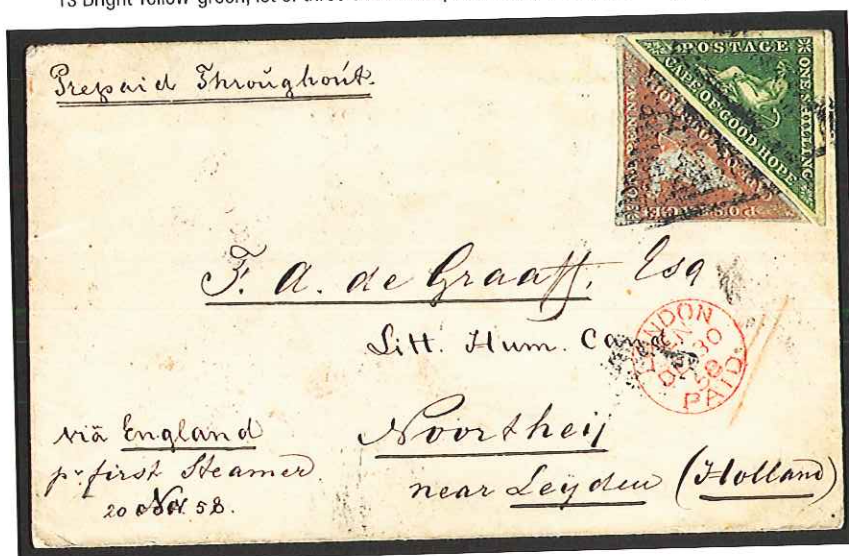 Prepaid Throughout.
POSTAGE
ONE SHILLING
CAPE OF GOOD HOPE
F. A. de Graaff, Esq
Litt. Hum. Cand
LONDON
EN
30
58
PAID
Noortheij
near Leyden (Holland)
viâ England
pr first Steamer
20 Nov. 58.